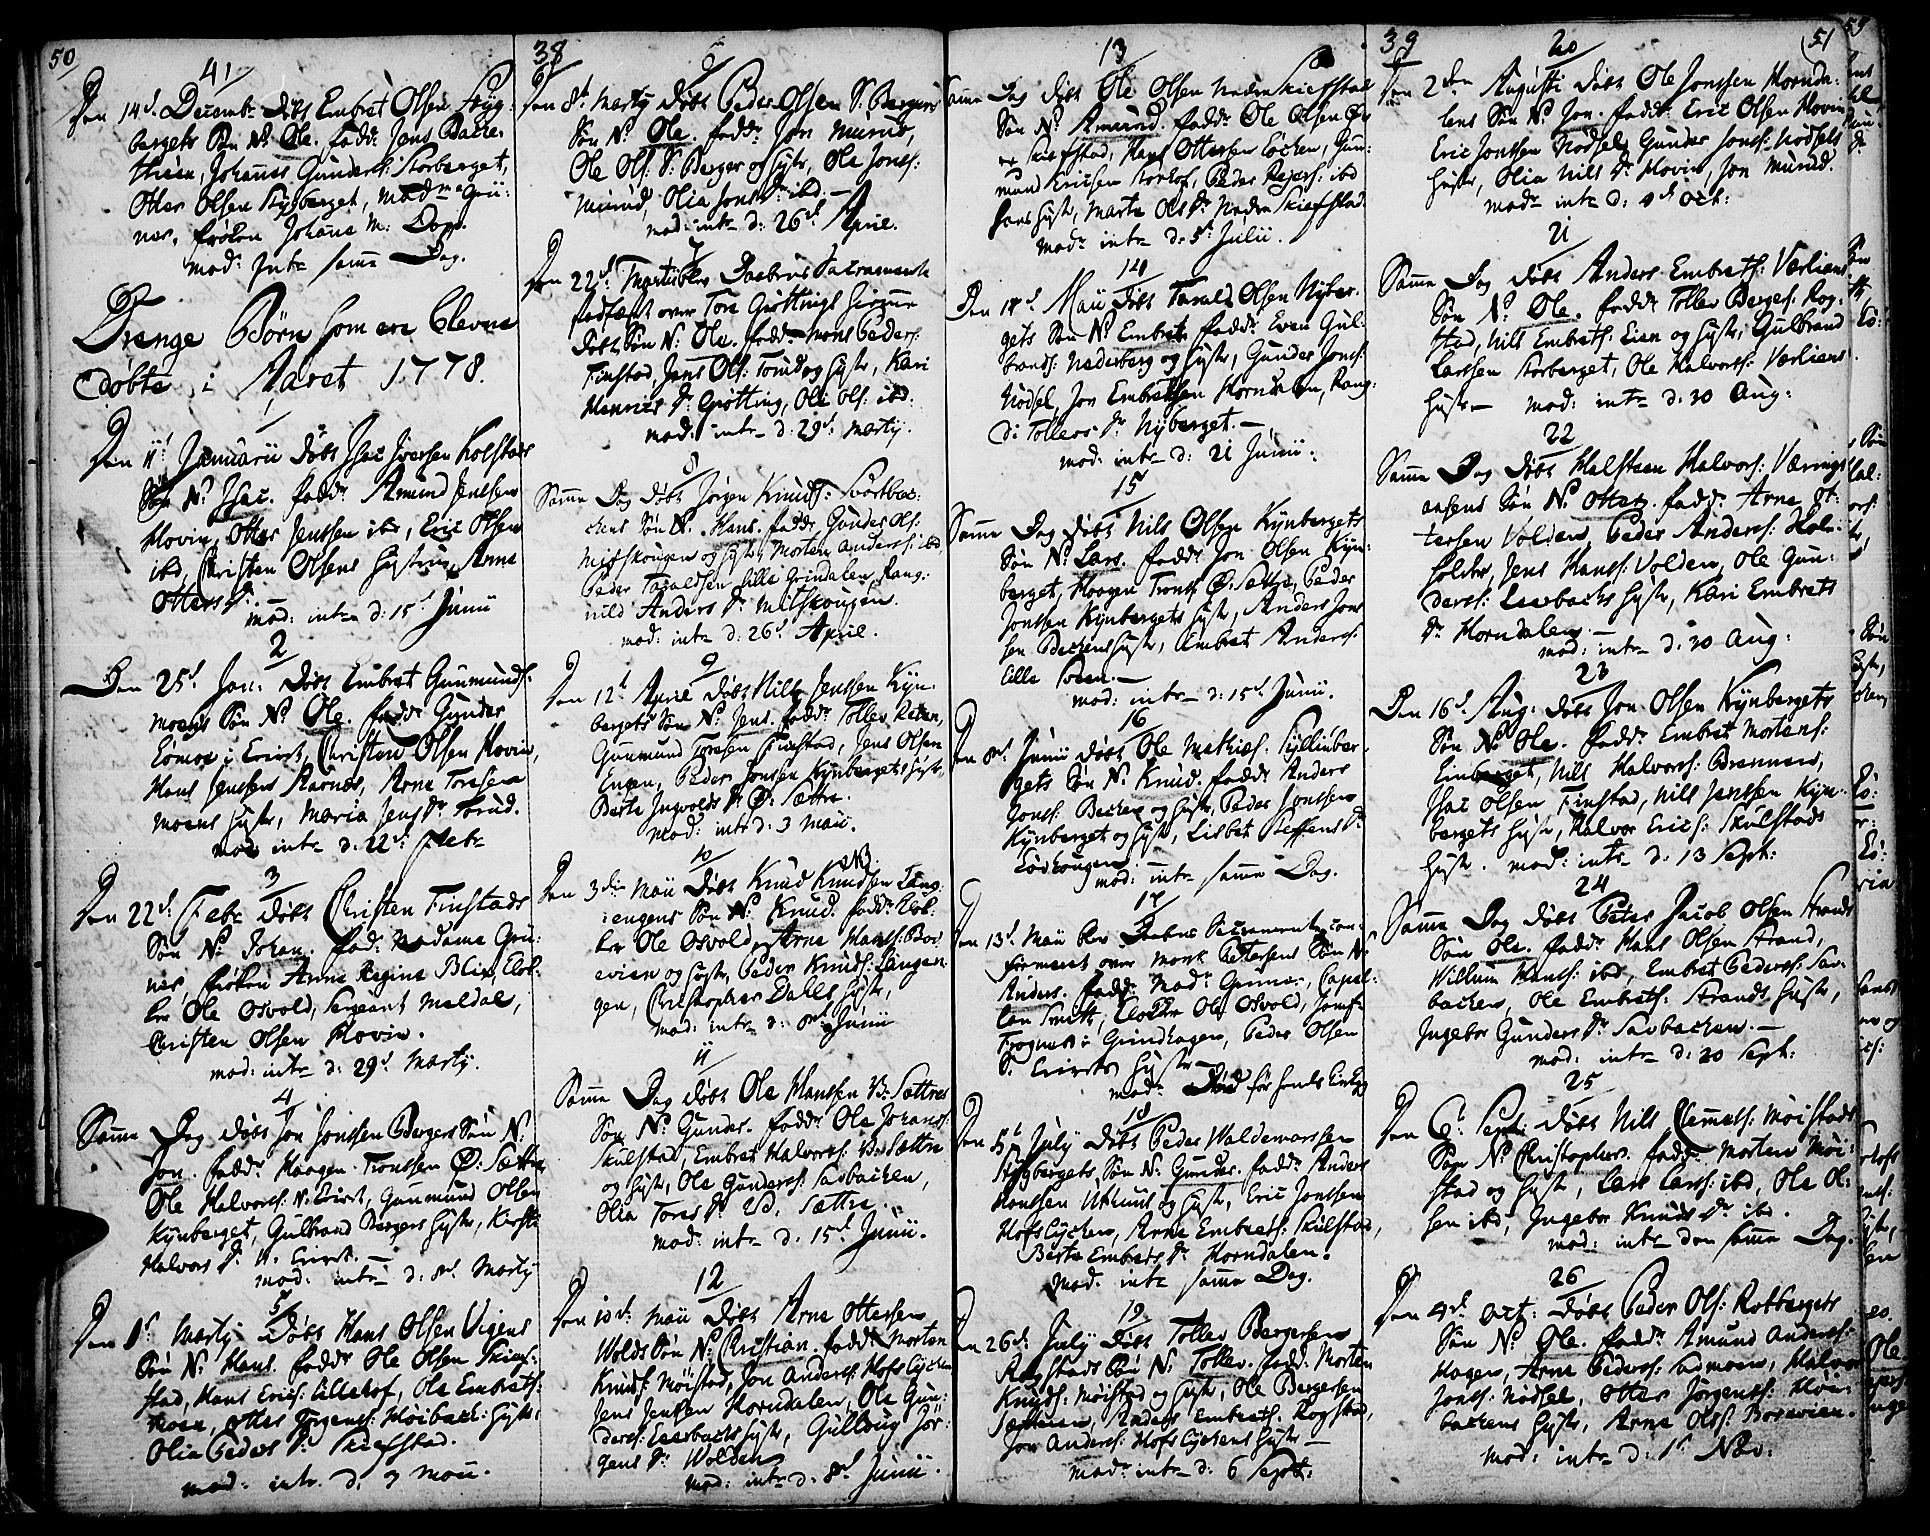 50
41
Den 14d Decembr Døbt Embret Olsen Styg:
bergets Søn N. Ole. fadd: Jens Backe:
Johannes Gunders: Storberget,
Otter Olsen Stygberget, Madme Grü:
ner, frøken Johana M: Dop.
mod: Intr samme Dag.
Drenge Børn som ere blevne
døbte i Aaret 1778.
1
Den 11t Januarii Døbt Isac Iversen Kolstads
Søn N. Isac. fadd: Amund Jensen
Hovin, Otter Jensen ibd, Eric Olsen
ibd, Christen Olsens Hustrue, Arne
Otters D:
mod: intr d: 15d Junii
2
Den 25d Jan: Døbt Embret Gunmunds:
moens Søn N. Ole. fadd: Gunder
i Evirst, Christen Olsen Hovin,
Hans Jensen Aarnæs, Arne Toresen
moens Hustr, Maria Jens Dr Torud.
mod intr d: 22d Febr
3
Den 22d: Febr Døbt Christen Finstads
Søn N. Johan. fad: Madame Grü:
ner, frøken Anne Regine Blix, Clok:
ker Ole Osvold, Sergeant Meldal,
Christen Olsen Hovin.
mod: intr d: 29d Martj.
4
Samme Dag døbt Jon Jonsen Bergers Søn N.
Jon. fadd: Haagen Tronsen Ø: Sættre
Ole Halvors: N: Evirst, Gunmund Olsen
Kynberget, Gulbrand Bergers Hustr, Kirsti
Halvors D: N. Evirst.
mod: intr d: 8d Martj
5
Den 1t Martj Døbt Hans Olsen Vigens
Søn N: Hans. fadd: Ole Olsen Skiefs:
stad, Hans Erics: Lillehof, Ole Embrets:
moen, Otter Jørgens: Moiback: Hustr.
Olia Peders D: Skiefstad.
mod: intr. d: 3 Maii.
38
6
Den 8t Martj Døbt Peder Olsen S: Bergers
Søn N. Ole. fadd: Jon Murud,
Ole Ols: S: Berger og Hustr, Ole Jons:
Murud, Olia Jons D: ibd.
mod: intr d: 26d April.
7
Den 22d Martj blev Daabens Sacramente
stadfæst over Tore Grøttings hiemme
døbt Søn N: Ole. fadd: Mons Peders:
Finstad, Jens Ols: Torud og Hustr, Kari
Henrics D: Grøtting, Ole Ols: ibd.
mod: intr d: 29d: Martj.
8
Samme Dag døbt Jørgen Knuds: Svartbec:
kens Søn N. Hans. fadd: Gunder Ols:
Mitskougen og Hustr, Morten Anders: ibd,
Peder Taraldsen Lille Grindalen, Rang:
nild Anders D: Mitskougen.
mod: intr d: 26d April.
9
Den 12t April Døbt Nils Jensen Kyn:
bergets Søn N: Jens. fadd: Tollev
Gunmund Toresen Finstad, Jens Olsen
Engen, Peder Jonsen Kynbergets Hustr,
Berte Ingvolds D: Ø: Sættre.
mod: intr d: 3 Maii.
10
Den 3die Maii Døbt Knud Knudsen Lang:
engens Søn N. Knud. fadd: Clok:
ker Ole Osvold, Arne Hans: Bor:
evien og Hustr, Peder Knuds: Langen:
gen, Christopher Dahls Hustr,
mod: intr d: 8d Junii
11
Samme Dag døbt Ole Hansen V: Sættres
Søn N. Gunder. fadd: Ole Johans:
Skulstad, Embret Halvors: V. Sættre
og Hustr, Ole Gunders: Savbacken,
Olia Tores D: V. Sættre.
mod: intr d: 15d Junii.
12
Den 10d. Maii Døbt Arne Ottersen
Wolds Søn N. Christian. fadd: Morten
Knuds: Moistad, Jon Anders: Hofs Eychen
Jens Jensen Horndalen, Ole Gun:
ders: Leerbacks Hustr, Gullovig Jør:
gens D: Wolden
mod: intr d: 8d Junii.
13
Samme Dag døbt Ole Olsen Nedre Skiefstad
Søn N. Amund. fadd: Ole Olsen Øv
re Skiefstad, Hans Ottersen Løcken, Gun:
mund Ericsen Storhof, Peder Rejers: ibd
hans Hustr, Marte Ols D: Neder Skiefstad.
mod: intr d: 5t Julii.
14
Den 14d Maii Døbt Tarald Olsen Nyber:
gets Søn N. Embret. fadd: Even Gul:
brands: Nederberg og Hustr, Gunder Jons:
Nødsel, Jon Embretsen Horndalen, Rang:
di Tollevs D: Nyberget.
mod: intr d: 21 Junii.
15
Samme Dag døbt Nils Olsen Kynbergets
Søn N: Lars. fadd: Jon Olsen Kyn:
berget, Haagen Trons: Ø: Sættre, Peder
Jonsen Kynbergets Hustr, Anders Jon
sen Backens Hustr, Embret Anders:
Lille Moen.
mod: intr d: 15d Junii.
16
Den 8d Junii Døbt Ole Mathies: Kyllinber:
gets Søn N: Knud. fadd: Anders
Jons: Backen og Hustr, Peder Jonsen
Kynberget og Hustr, Lisbet Steffens D:
Lødkougen
mod: intr samme Dag.
17
Den 13d Maii blev Daabens Sacramente con:
firmeret over Mons Pettersens Søn N.
Anders. fadd: Mad: Grüner, Capel:
len Smitt, Clocker Ole Osvold, Jomf:
Frogner i Grindhagen, Peder Olsen
S. Evirsts Hustr
mod: Død før hends Kirkeg
18
Den 5t July Døbt Peder Waldemarsen
Stygbergets Søn N: Gunder. fadd: Anders
Hansen og Hustr, Eric Jonsen
Hofs Eychen, Arne Embrets: Skulstad,
Berte Embrets D: Horndalen.
mod. intr samme Dag.
19
Den 26d July Døbt Tollev Bergersen
Rogstads Søn N. Tollev. fadd: Morten
Knuds: Moistad og Hustr, Ole Bergersen
Anders Embrets: Rogstad,
Jon Anders: Hofs Eychens Hustr
mod: intr d: 6 Sept:
39
51
20
Den 2den Augusti Døbt Ole Jonsen Hornda:
lens Søn N. Jon. fadd: Eric Olsen Hovin
Eric Jonsen Nødsel, Gunder Jons: Nødsels
Hustr, Olia Nils D: Hovin, Jon Murud.
mod: intr d: 4d Oct:
21
Samme Dag døbt Anders Embrets: Værliens
Søn N. Ole. fadd: Tollev Bergers: Rog:
stad, Nils Embrets: Eien og Hustr, Gulbrand
Larsen Storberget, Ole Halvors: Værliens
Hustr mod: intr d: 30 Aug:
22
Samme Dag døbt Halsteen Halvors: Værings
aasens Søn N. Otter. fadd: Arne Ot:
tersen Volden, Peder Anders: Hol:
Jens Hans: Volden, Ole Gun:
ders: Leerbacks Hustr, Kari Embrets
D: Horndalen.
mod: intr d: 30 Aug:
23
Den 16d. Aug: døbt Jon Olsen Kynbergets
Søn N: Ole. fadd: Embret Mortens:
Nils Halvors: Brennen,
Isac Olsen Finstad, Nils Jensen Kyn:
bergets Hustr, Halvor Erics: Skulstads
Hustr. mod: intr d: 13 Sept:
24
Samme Dag døbt Peter Jacob Olsen Strands
Søn Ole. fadd: Hans Olsen Strand,
Villum Hans: ibd, Embret Peders: Sav:
backen, Ole Embrets: Strands Hustr,
Ingebor Gunders D: Savbacken.
mod: intr d: 20 Sept:
25
Den 6t Sept: døbt Nils Clemets: Moistads
Søn N. Christopher. fadd: Morten Moi:
stad og Hustr, Lars Lars: ibd, Ole Ol:
sen ibd, Ingebor Knuds D: ibd.
mod: intr den samme Dag.
26
Den 4d. Oct: Døbt Peder Ols: Rotbergets
Søn N. Ole. fadd: Amund Anders:
Hagen, Arne Peders: Hal<br>vor
Jons: Nødsel, Otter Jørgens: Moi:
backens Hustr, Arne Ols: Borevien.
mod: intr d: 1t Nov: